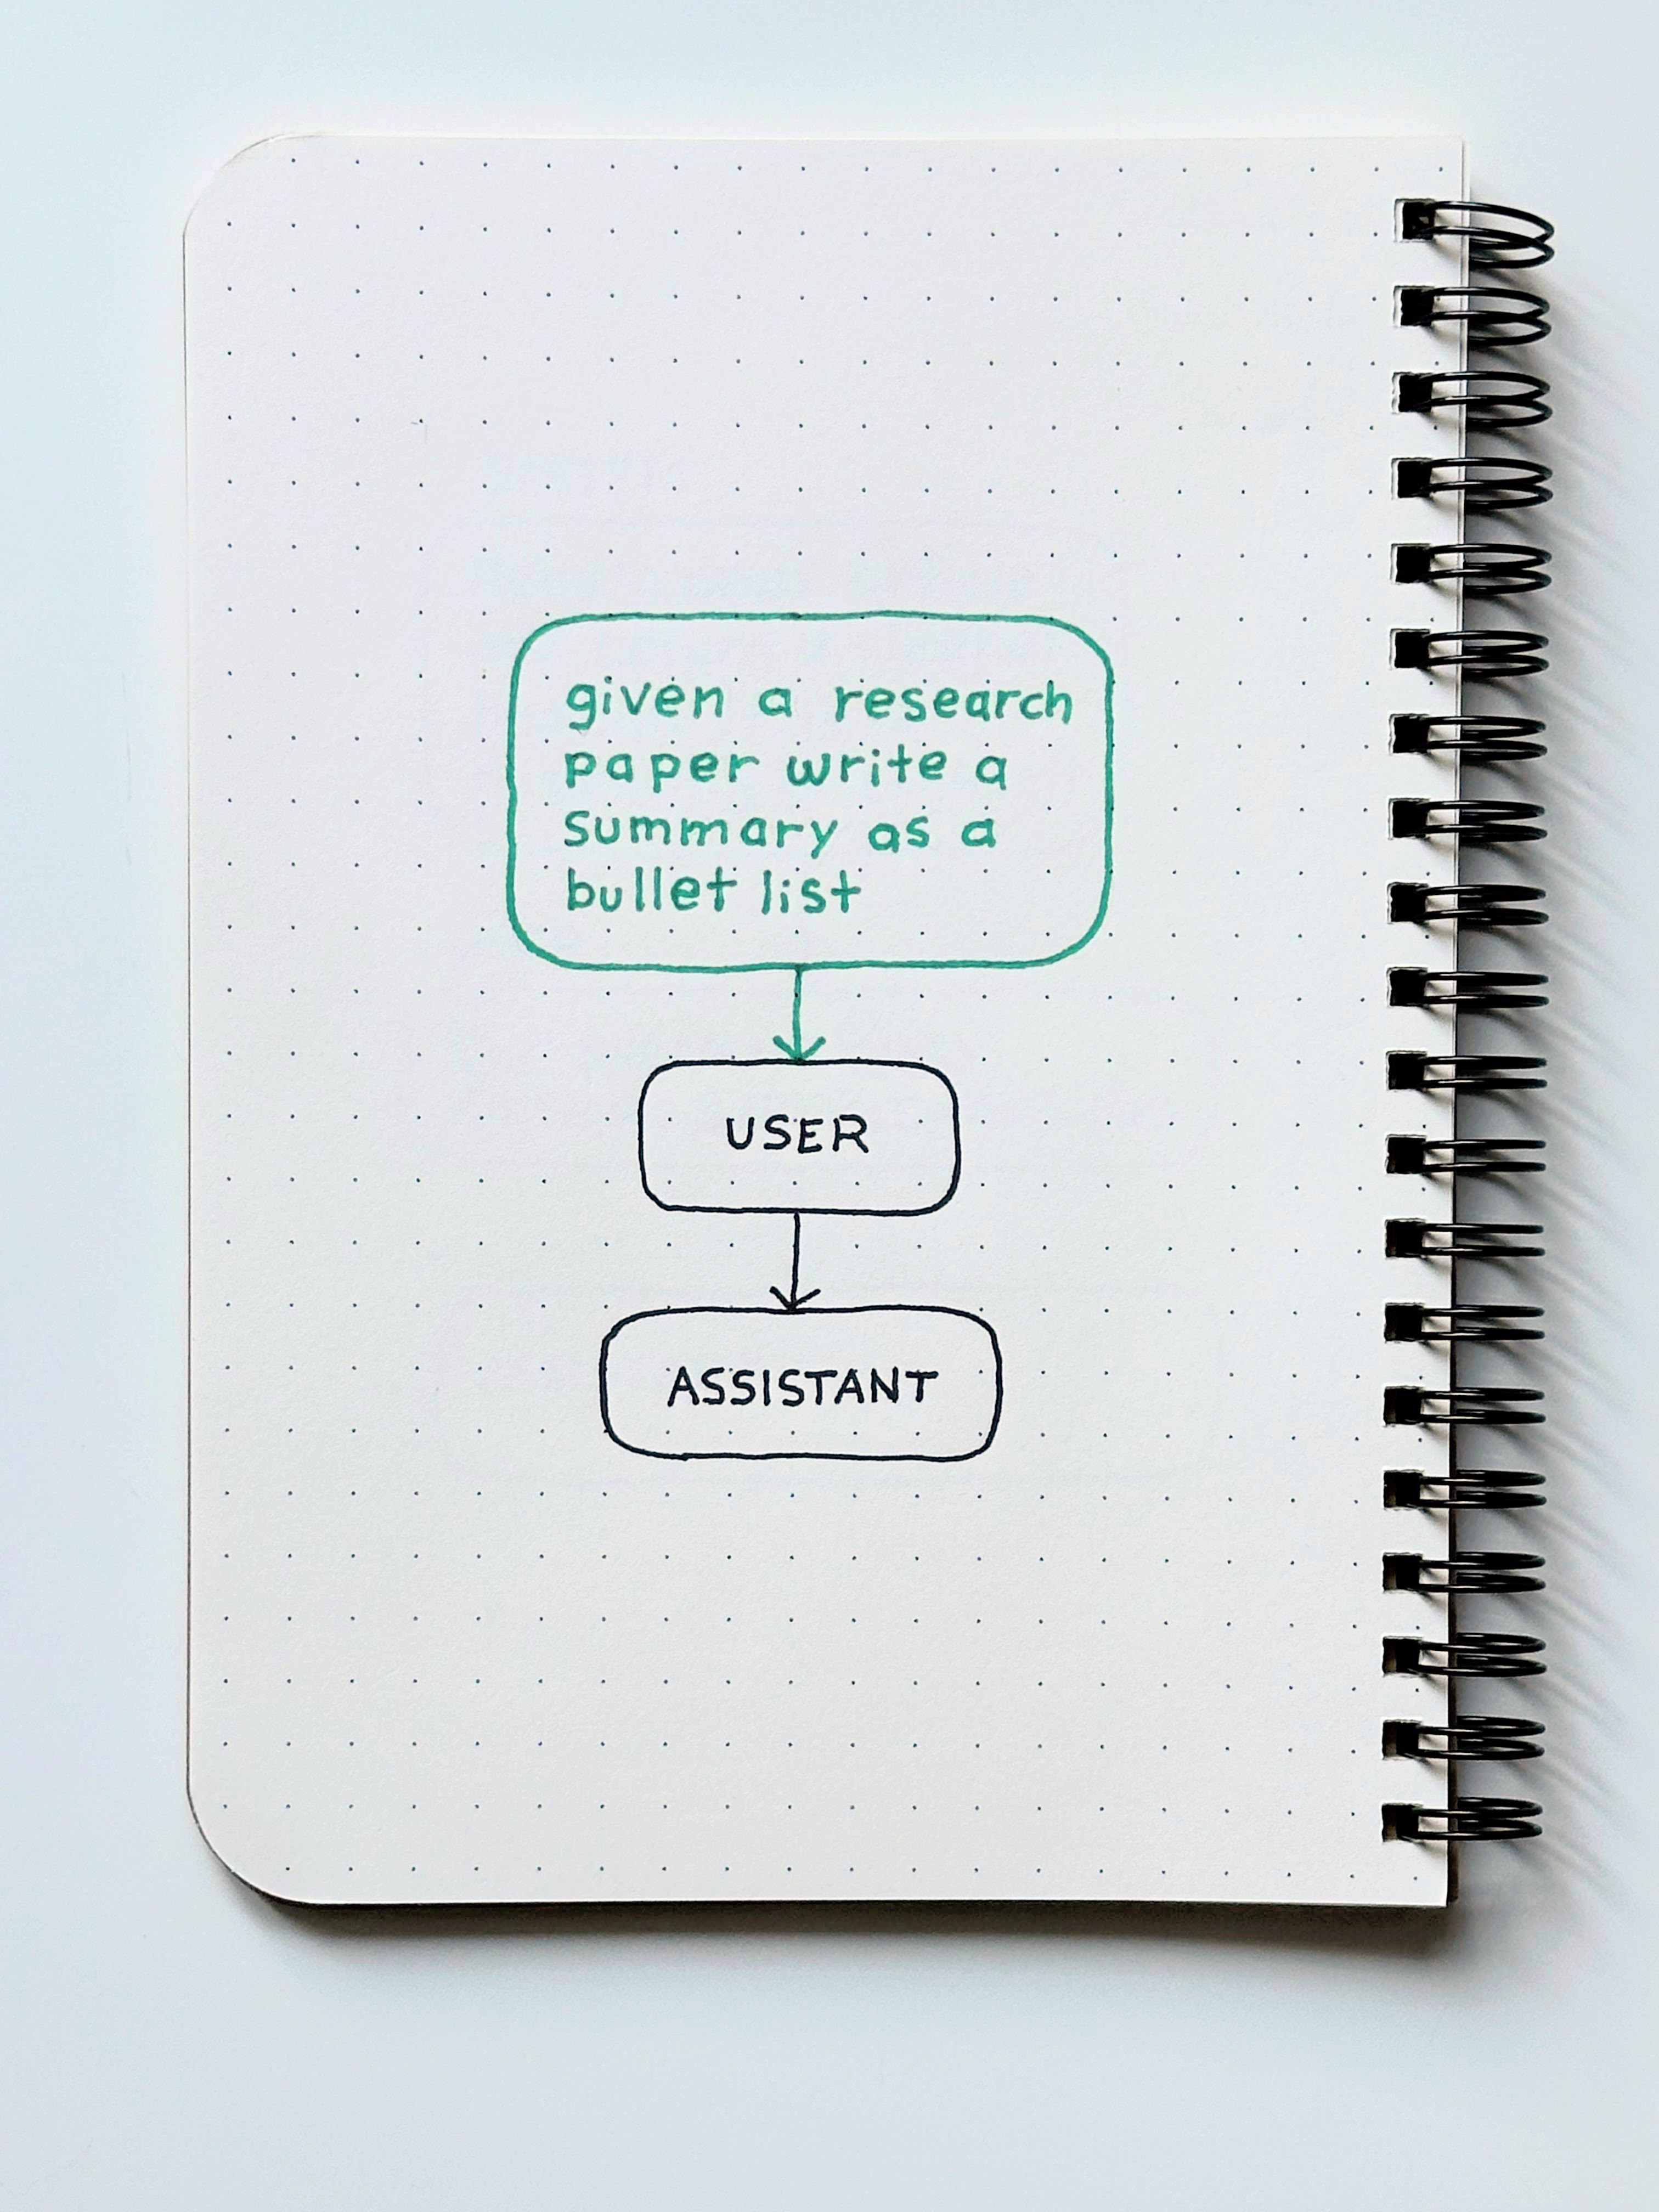 given a research
paper write a
summary as a
bullet list
USER
ASSISTANT